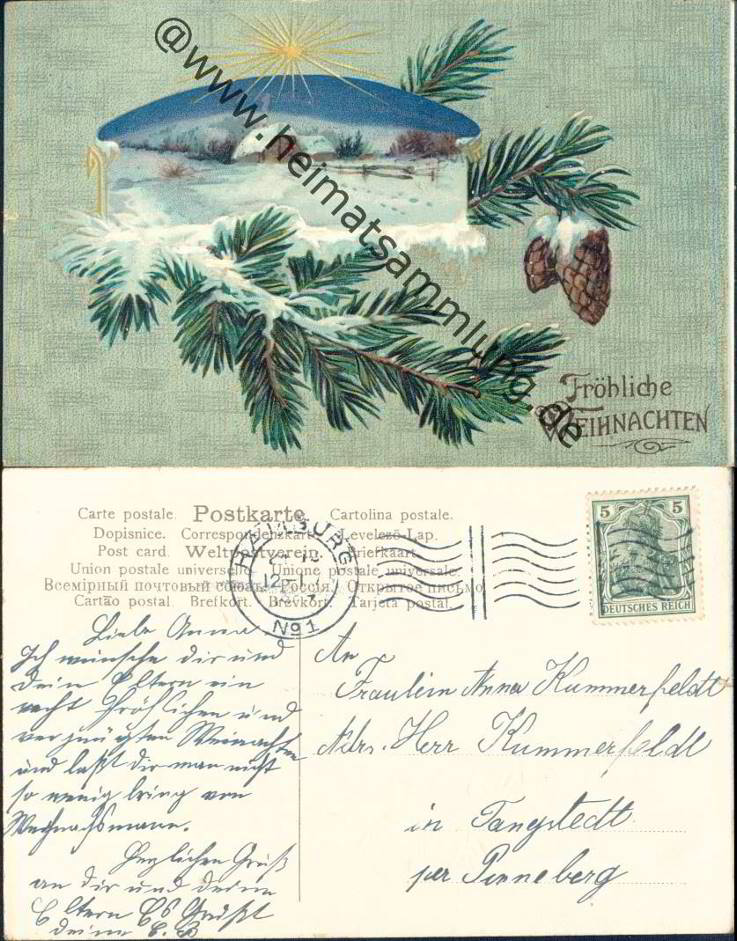 @www.heimatsammlung.de
Fröhliche
WEIHNACHTEN
Carte postale. Postkarte Cartolina postale.
Dopisnice. Correspondenzkarte. Levelező-Lap.
Post card. Weltpostverein. Briefkaart.
Union postale universelle. Unione postale universale.
Всемірный почтовый союзъ. Россія. Открытое письмо.
Cartão postal. Brefkort. Brevkort. Tarjeta postal.
HAMBURG
No 1
5 5
DEUTSCHES REICH
Liebe Anna
Ich wünsche dir und
dein Eltern ein
recht Fröhlichen und
vergnügten Weinachten
und laßt dir man nicht
so wenig bring von
Weihnachsmann.
Herzlichen Gruß
an dir und deine
Eltern Es Grüßt
deine
An
Fräulein Anna Kummerfeldt
Adrs. Herr Kummerfeldt
in Tangstedt
per Pinneberg